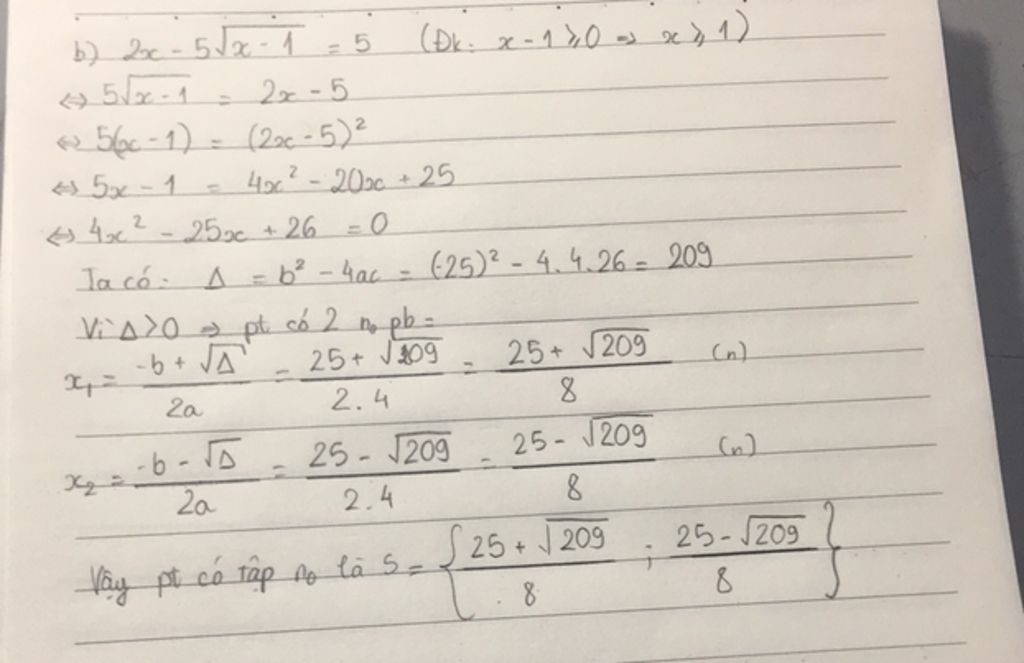 b) 2x - 5√(x - 1) = 5 (Đk: x - 1 ⩾ 0 ⇒ x ⩾ 1)
⇔ 5√(x - 1) = 2x - 5
⇔ 5(x - 1) = (2x - 5)²
⇔ 5x - 1 = 4x² - 20x + 25
⇔ 4x² - 25x + 26 = 0
Ta có: Δ = b² - 4ac = (-25)² - 4.4.26 = 209
Vì Δ > 0 ⇒ pt có 2 no pb:
x₁ = (-b + √Δ)/2a = (25 + √209)/2.4 = (25 + √209)/8 (n)
x₂ = (-b - √Δ)/2a = (25 - √209)/2.4 = (25 - √209)/8 (n)
Vậy pt có tập no là S = {(25 + √209)/8 ; (25 - √209)/8}